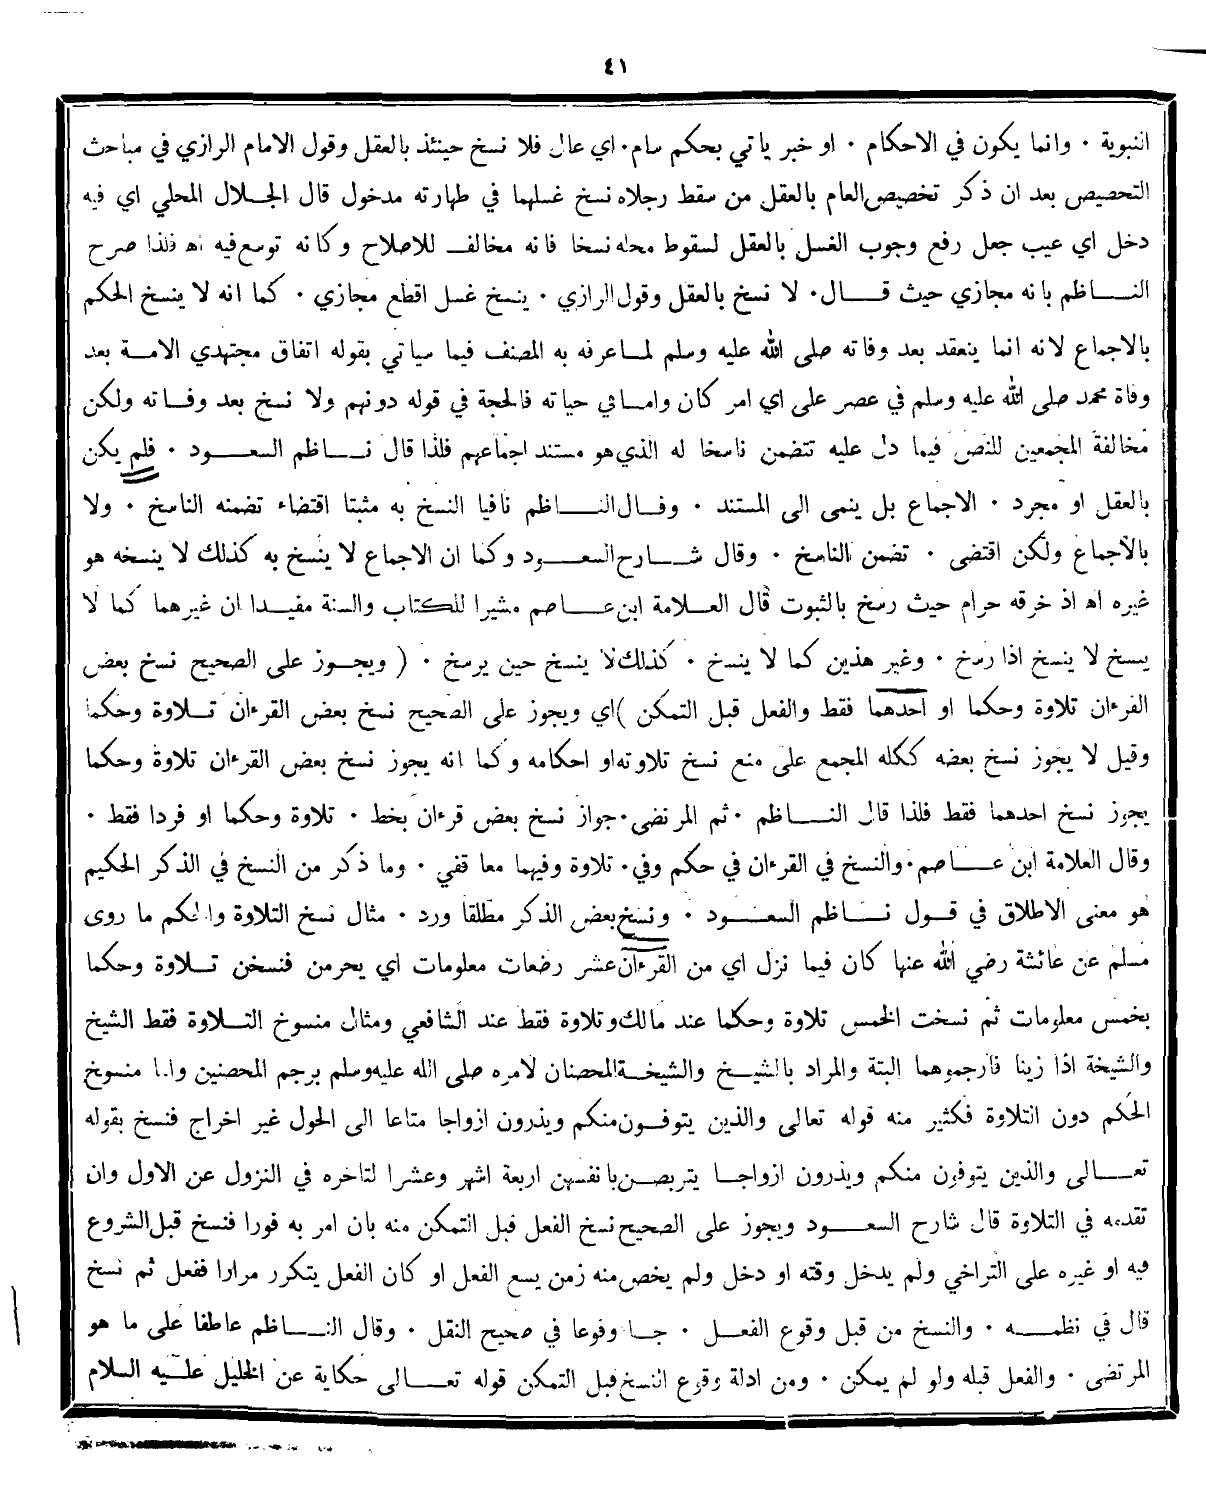 ٤١
النبوية ٠ وانما يكون في الاحكام ٠ او خبر ياتي بحكم سام ٠ اي عال فلا نسخ حينئذ بالعقل وقول الامام الرازي في مباحث
التحصيص بعد ان ذكر تخصيص العام بالعقل من سقط رجلاه نسخ غسلهما في طهارته مدخول قال الجـلال المحلي اي فيه
دخل اي عيب جعل رفع وجوب الغسل بالعقل لسقوط محله نسخا فانه مخالف للاصلاح وكانه توسع فيه اه فلذا صرح
النـــاظم بانه مجازي حيث قـــال ٠ لا نسخ بالعقل وقول الرازي ٠ ينسخ غسل اقطع مجازي ٠ كما انه لا ينسخ الحكم
بالاجماع لانه انما ينعقد بعد وفاته صلى الله عليه وسلم لمـاعرفه به المصنف فيما سياتي بقوله اتفاق مجتهدي الامـة بعد
وفاة محمد صلى الله عليه وسلم في عصر على اي امر كان وامـا في حياته فالحجة في قوله دونهم ولا نسخ بعد وفـاته ولكن
مخالفة المجمعين للنص فيما دل عليه تتضمن ناسخا له الذي هو مستند اجماعهم فلذا قال نـــاظم السعـــود ٠ فلم يكن
بالعقل او مجرد ٠ الاجماع بل ينمى الى المستند ٠ وقـال النـــاظم نافيا النسخ به مثبتا اقتضاء تضمنه الناسخ ٠ ولا
بالاجماع ولكن اقتضى ٠ تضمن الناسخ ٠ وقال شـــارح السعـــود وكما ان الاجماع لا ينسخ به كذلك لا ينسخه هو
غيره اه اذ خرقه حرام حيث رسخ بالثبوت قال العـلامة ابن عـــاصم مشيرا للكتاب والسنة مفيـدا ان غيرهما كما لا
ينسخ لا ينسخ اذا رسخ ٠ وغير هذين كما لا ينسخ ٠ كذلك لا ينسخ حين يرسخ ٠ ( ويجـوز على الصحيح نسخ بعض
القرءان تلاوة وحكما او احدهما فقط والفعل قبل التمكن )اي ويجوز على الصحيح نسخ بعض القرءان تـلاوة وحكما
وقيل لا يجوز نسخ بعضه ككله المجمع على منع نسخ تلاوته او احكامه وكما انه يجوز نسخ بعض القرءان تلاوة وحكما
يجوز نسخ احدهما فقط فلذا قال النـــاظم ٠ ثم المرتضى ٠ جواز نسخ بعض قرءان بخط ٠ تلاوة وحكما او فردا فقط ٠
وقال العلامة ابن عـــاصم ٠ والنسخ في القرءان في حكم وفي ٠ تلاوة وفيهما معا قفي ٠ وما ذكر من النسخ في الذكر الحكيم
هو معنى الاطلاق في قـول نـــاظم السعـــود ٠ ونسخ بعض الذكر مطلقا ورد ٠ مثال نسخ التلاوة والحكم ما روى
مسلم عن عائشة رضي الله عنها كان فيما نزل اي من القرءان عشر رضعات معلومات اي يحرمن فنسخن تـلاوة وحكما
بخمس معلومات ثم نسخت الخمس تلاوة وحكما عند مالك وتلاوة فقط عند الشافعي ومثال منسوخ التـلاوة فقط الشيخ
والشيخة اذا زينا فارجموهما البتة والمراد بالشيـخ والشيخـة المحصنان لامره صلى الله عليه وسلم برجم المحصنين واما منسوخ
الحكم دون التلاوة فكثير منه قوله تعالى والذين يتوفـون منكم ويذرون ازواجا متاعا الى الحول غير اخراج فنسخ بقوله
تعـــالى والذين يتوفون منكم ويذرون ازواجـا يتربصـن بانفسهن اربعة اشهر وعشرا لتاخره في النزول عن الاول وان
تقدمه في التلاوة قال شارح السعـــود ويجوز على الصحيح نسخ الفعل قبل التمكن منه بان امر به فورا فنسخ قبل الشروع
فيه او غيره على التراخي ولم يدخل وقته او دخل ولم يخص منه زمن يسع الفعل او كان الفعل يتكرر مرارا ففعل ثم نسخ
قال في نظمـــه ٠ والنسخ من قبل وقوع الفعـــل ٠ جـا وقوعا في صحيح النقل ٠ وقال النـــاظم عاطفا على ما هو
المرتضى ٠ والفعل قبله ولو لم يمكن ٠ ومن ادلة وقوع النسخ قبل التمكن قوله تعـــالى حكاية عن الخليل عليه السلام